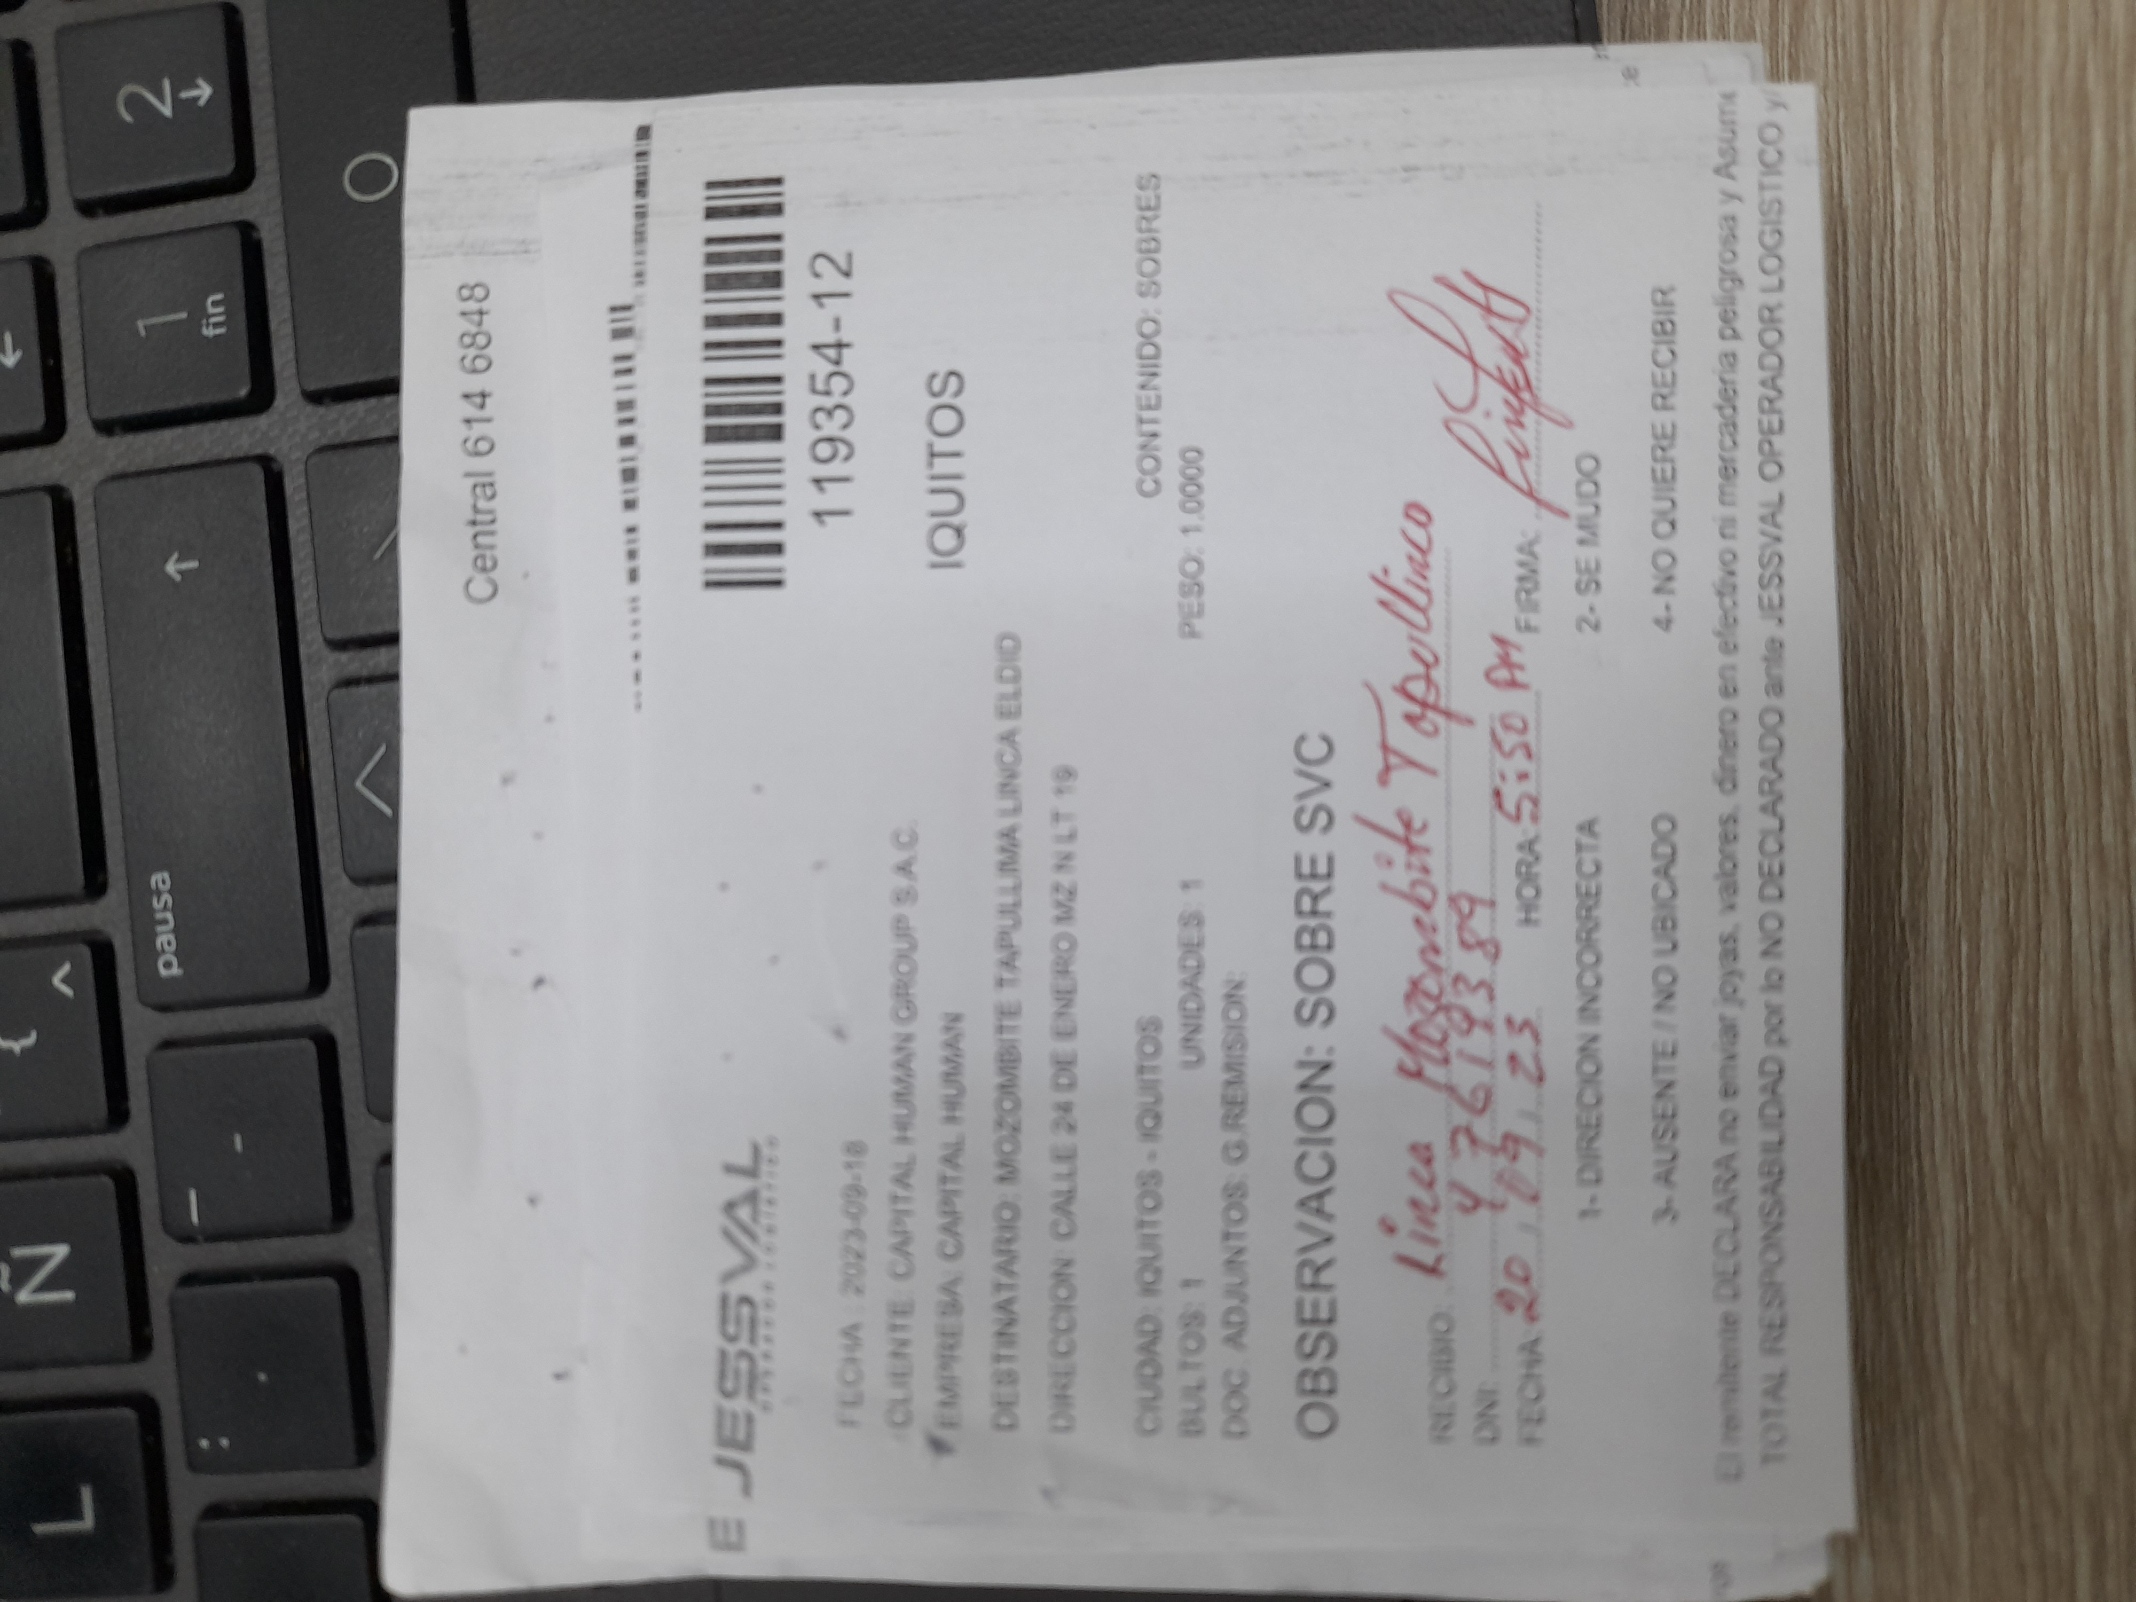 L
Ñ
{
^
←
:
.
_
-
pausa
↑
1
fin
2
↓
0
Central 614 6848
E JESSVAL
OPERADOR LOGÍSTICO
119354-12
FECHA : 2023-09-18
CLIENTE: CAPITAL HUMAN GROUP S.A.C.
EMPRESA: CAPITAL HUMAN
IQUITOS
DESTINATARIO: MOZOMBITE TAPULLIMA LINCA ELDID
DIRECCION: CALLE 24 DE ENERO MZ N LT 19
CIUDAD: IQUITOS - IQUITOS CONTENIDO: SOBRES
BULTOS: 1 UNIDADES: 1 PESO: 1.0000
DOC. ADJUNTOS: G.REMISION:
OBSERVACION: SOBRE SVC
RECIBIO: Linca Mozombite Tapullinco
DNI: 47619389
FECHA: 20 / 09 / 23 HORA: 5:50 PM FIRMA:
1- DIRECION INCORRECTA 2- SE MUDO
3- AUSENTE / NO UBICADO 4- NO QUIERE RECIBIR
El remitente DECLARA no enviar joyas, valores, dinero en efectivo ni mercaderia peligrosa y Asume
TOTAL RESPONSABILIDAD por lo NO DECLARADO ante JESSVAL OPERADOR LOGISTICO y/